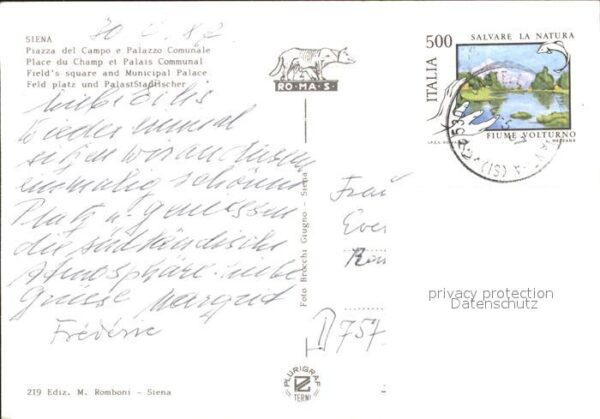 SIENA
Piazza del Campo e Palazzo Comunale
Place du Champ et Palais Communal
Field's square and Municipal Palace
Feld platz und PalastStadtischer
RO·MA·S·
500
SALVARE LA NATURA
ITALIA
FIUME VOLTURNO
530
(SI)
wieder einmal
sitzen wir an diesem
einmalig schönen
Platz u. genießen
die südländische
Atmosphäre. Liebe
Grüsse Margrit
Frédéric
Frau
D 757
privacy protection
Datenschutz
Foto Brocchi Giugno - Siena
PLURIGRAF
TERNI
219 Ediz. M. Romboni - Siena